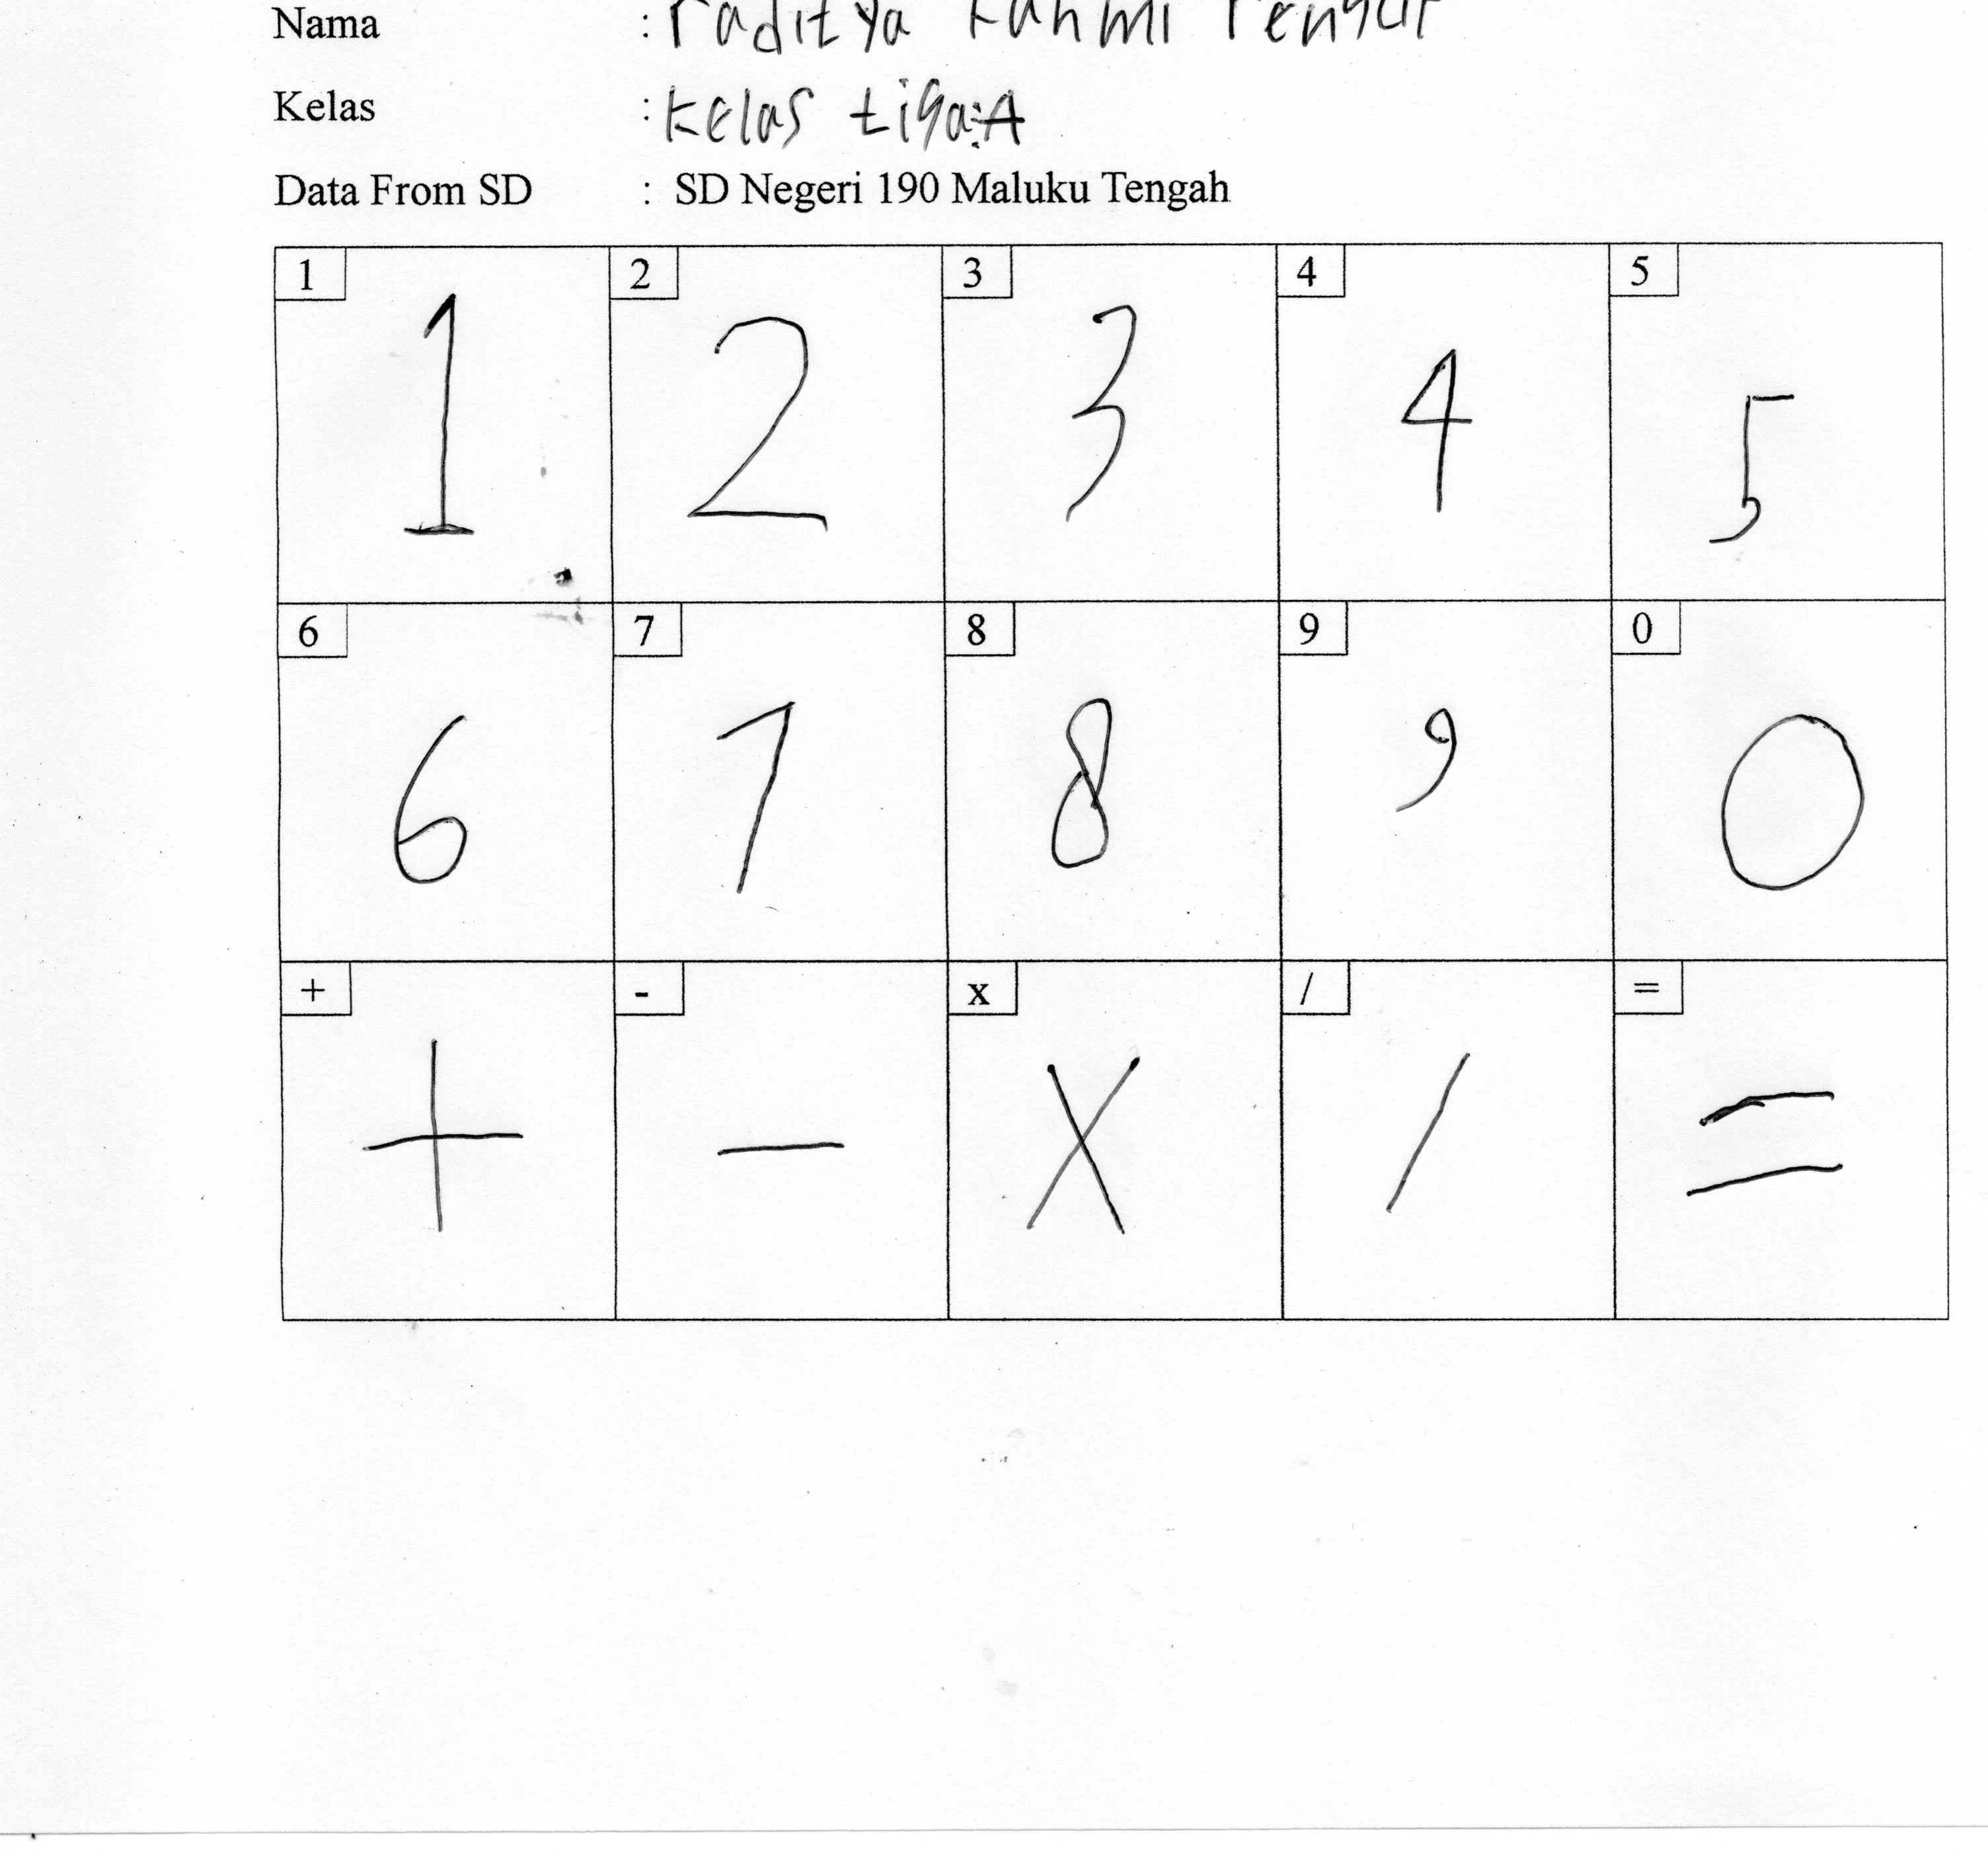 Nama : raditya
Kelas : Kelas tiga:A
Data From SD : SD Negeri 190 Maluku Tengah
1 2 3 4 5
1 2 3 4 5
6 7 8 9 0
6 7 8 9 0
+ - x / =
+ - x / =